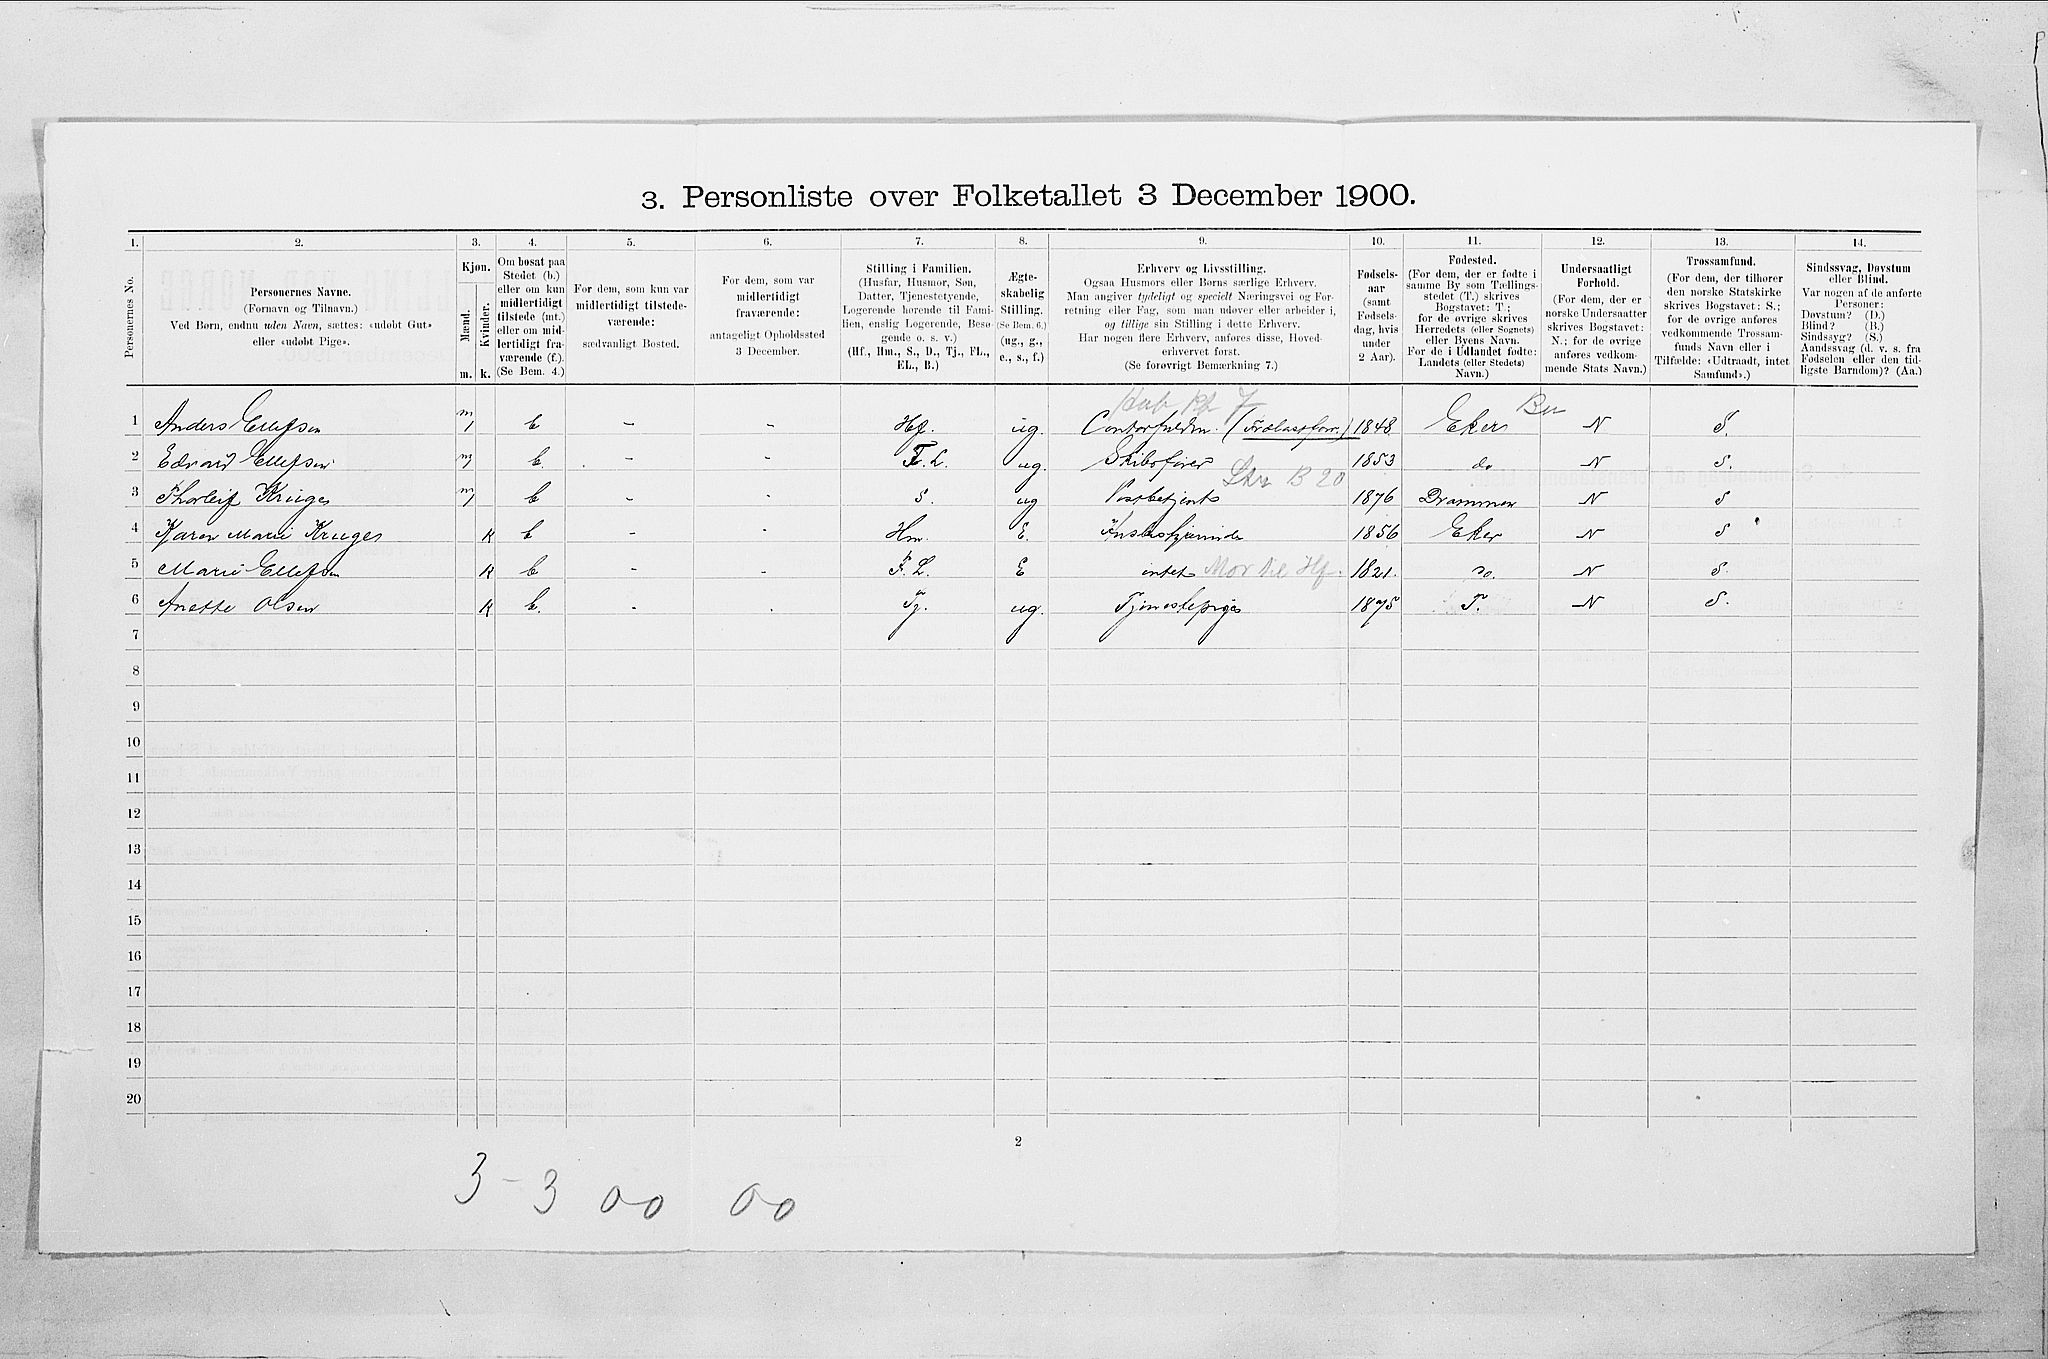 3. Personliste over Folketallet 3 December 1900.
1. 2. 3. 4. 5. 6. 7. 8. 9. 10. 11. 12. 13. 14.
Personernes No.
Personernes Navne.
(Fornavn og Tilnavn.)
Ved Børn, endnu uden Navn, sættes: «udøbt Gut»
eller «udøbt Pige».
Kjøn.
Mænd.
Kvinder.
m. k.
Om bosat paa
Stedet (b.)
eller om kun
midlertidigt
tilstede (mt.)
eller om mid-
lertidigt fra-
værende (f.).
(Se Bem. 4.)
For dem, som kun var
midlertidigt tilstede-
værende:
sædvanligt Bosted.
For dem, som var
midlertidigt
fraværende:
antageligt Opholdssted
3 December.
Stilling i Familien.
(Husfar, Husmor, Søn,
Datter, Tjenestetyende,
Logerende hørende til Fami-
lien, enslig Logerende, Besø-
gende o. s. v.)
(Hf., Hm., S., D., Tj., FL.,
EL., B.)
Ægte-
skabelig
Stilling.
(Se Bem. 6.)
(ug., g.,
e., s., f.)
Erhverv og Livsstilling.
Ogsaa Husmors eller Børns særlige Erhverv.
Man angiver tydeligt og specielt Næringsvei og For-
retning eller Fag, som man udøver eller arbeider i,
og tillige sin Stilling i dette Erhverv.
Har nogen flere Erhverv, anføres disse, Hoved-
erhvervet først.
(Se forøvrigt Bemærkning 7.)
Fødsels-
aar
(samt
Fødsels-
dag, hvis
under
2 Aar).
Fødested.
(For dem, der er fødte i
samme By som Tællings-
stedet (T.) skrives
Bogstavet: T.;
for de øvrige skrives
Herredets (eller Sognets)
eller Byens Navn.
For de i Udlandet fødte:
Landets (eller Stedets)
Navn.)
Undersaatligt
Forhold.
(For dem, der er
norske Undersaatter
skrives Bogstavet:
N.; for de øvrige
anføres vedkom-
mende Stats Navn.)
Trossamfund.
(For dem, der tilhører
den norske Statskirke
skrives Bogstavet: S.;
for de øvrige anføres
vedkommende Trossam-
funds Navn eller i
Tilfælde: «Udtraadt, intet
Samfund».)
Sindssvag, Døvstum
eller Blind.
Var nogen af de anførte
Personer:
Døvstum? (D.)
Blind? (B.)
Sindssyg? (S.)
Aandssvag (d. v. s. fra
Fødselen eller den tid-
ligste Barndom)? (Aa.)
7 Bu
1 Anders Ellefsen m b - - Hf. ug. 1848 Eker N S.
2 Edvard Ellefsen m b. - - F. L. ug. Skibsfører 1853 do N S.
B 20
3 Thorleif Kruges m b - - S. ug Postbetjent 1876 Drammen N S
4 Karen Marie Kruges k b - - Hm. E. 1856 Eker N S
5 Marie Ellefsen k b - - F. L. E intet Mor til Hf. 1821. do. N S.
6 Anette Olsen k b. - - Tj. ug. Tjenestepige 1875 T. N S.
7
8
9
10
11
12
13
14
15
16
17
18
19
20
2
3 - 3 00 00